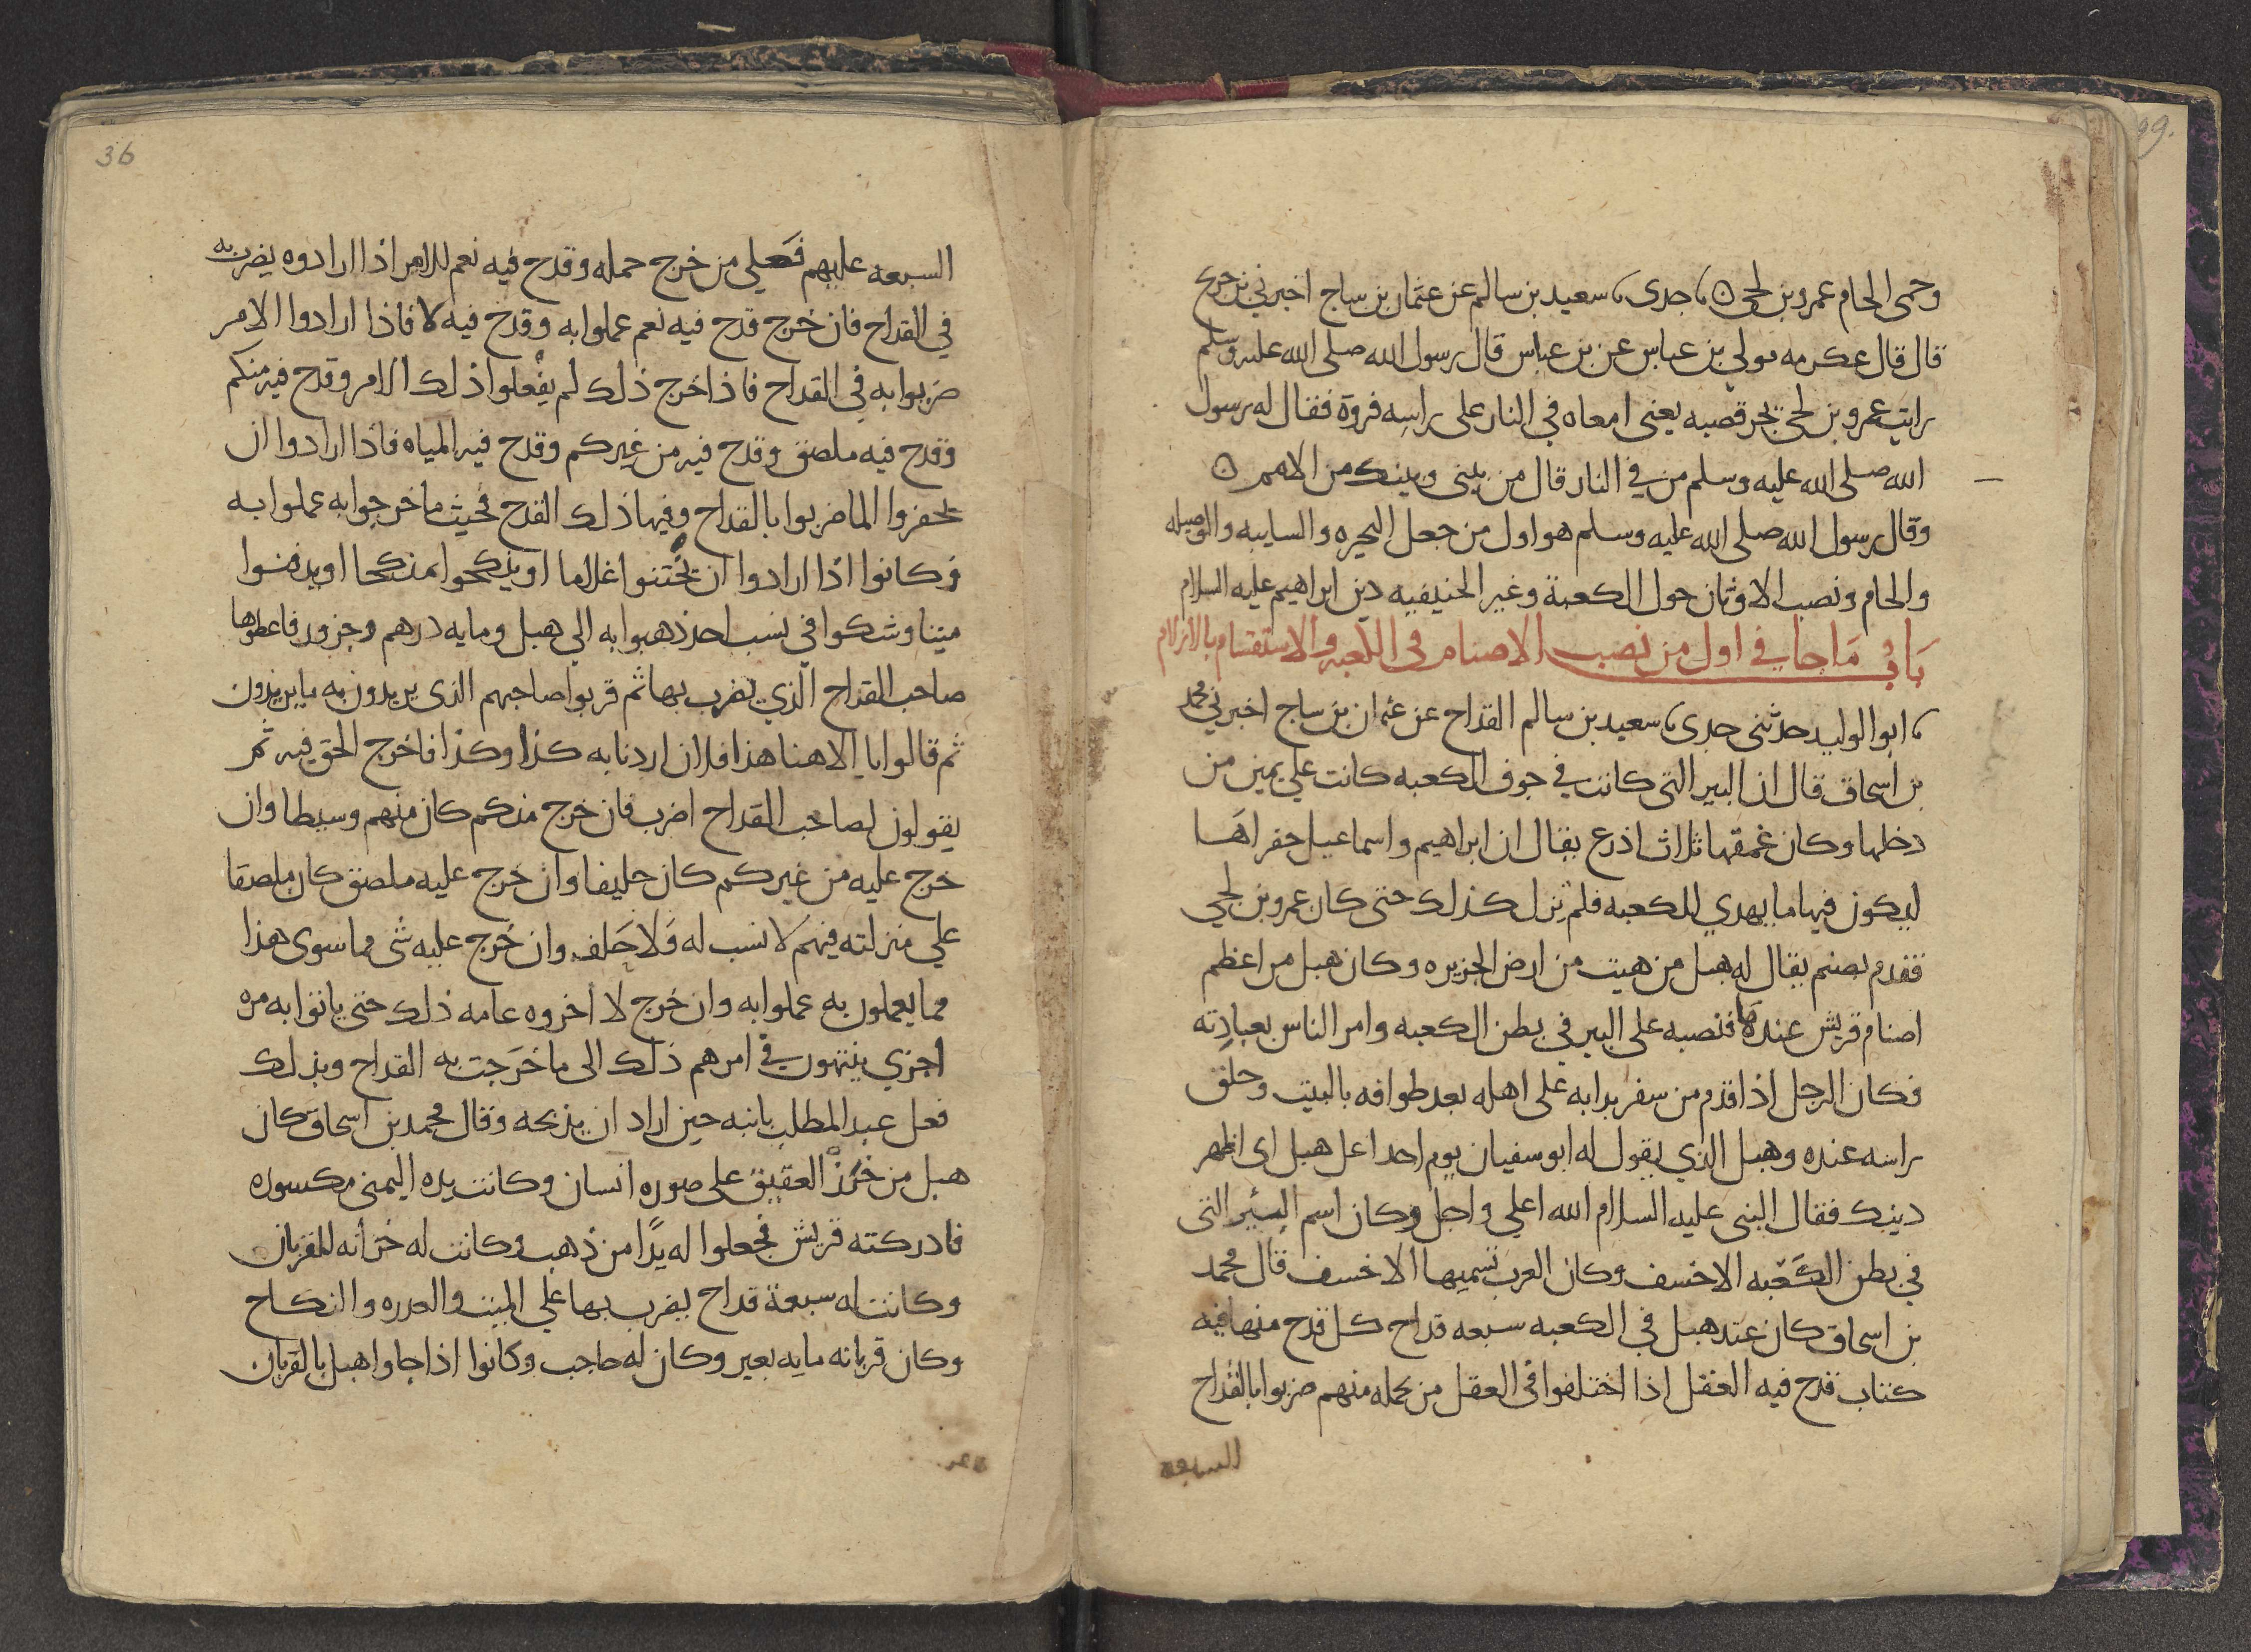 وحمى الحام عمرو بن لحي ۞ نا جدى نا سعيد بن سالم عن عثمان بن ساج اخبرني بن جريج
قال قال عكرمه مولي بن عباس عن بن عباس قال رسول الله صلى الله عليه وسلم
رايت عمرو بن لحي يجر قصبه يعنى امعاه في النار على راسه فروة فقال له رسول
الله صلى الله عليه وسلم من في النار قال من بينى وبينك من الامم ۞
وقال رسول الله صلى الله عليه وسلم هو اول من جعل البحيره والسايبه والوصيله
والحام ونصب الاوثان حول الكعبة وغير الحنيفيه دين ابراهيم عليه السلام
باب ما جا في اول من نصب الاصنام في الكعبه والاستقسام بالازلام
نا ابو الوليد حدثنى جدى نا سعيد بن سالم القداح عن عثمان بن ساج اخبرني محمد
بن اسحاق قال ان البير التى كانت في جوف الكعبه كانت علي يمين من
دخلها وكان عمقها ثلاث اذرع يقال ان ابراهيم واسماعيل حفراها
ليكون فيها ما يهدي للكعبه فلم تزل كذلك حتى كان عمرو بن لحي
فقدم بصنم يقال له هبل من هيت من ارض الجزيره وكان هبل من اعظم
اصنام قريش عندها فنصبه على البير في بطن الكعبه وامر الناس بعبادته
فكان الرجل اذا قدم من سفر بدا به على اهله بعد طوافه بالبيت وحلق
راسه عنده وهبل الذي يقول له ابو سفيان يوم احد اعل هبل اى اظهر
دينك فقال النبى عليه السلام الله اعلي واجل وكان اسم البئير التى
في بطن الكعبه الاخسف وكان العرب تسميها الاخسف قال محمد
بن اسحاق كان عند هبل في الكعبه سبعه قداح كل قدح منها فيه
كتاب قدح فيه العقل اذا اختلفوا في العقل من يحمله منهم ضربوا بالقداح
السبعه
36
السبعه عليهم فعلي من خرج حمله وقدح فيه نعم للامر اذا ارادوه يضرب به
في القداح فان خرج قدح فيه نعم عملوا به وقدح فيه لا فاذا ارادوا الامر
ضربوا به في القداح فاذا خرج ذلك لم يفعلوا ذلك الامر وقدح فيه منكم
وقدح فيه ملصق وقدح فيه من غيركم وقدح فيه المياه فاذا ارادوا ان
يحفروا الما ضربوا بالقداح وفيها ذلك القدح فحيث ما خرجوا به عملوا به
وكانوا اذا ارادوا ان يختنوا غلاما او ينكحوا منكحا او يدفنوا
ميتا وشكوا في نسب احد ذهبوا به الي هبل ومايه درهم وجزور فاعطوها
صاحب القداح الذي يضرب بها ثم قربوا صاحبهم الذى يريدون به ما يريدون
ثم قالوا يا الاهنا هذا فلان اردنا به كذا وكذا فاخرج الحق فيه ثم
يقولون لصاحب القداح اضرب فان خرج منكم كان منهم وسيطا وان
خرج عليه من غيركم كان حليفا وان خرج عليه ملصق كان ملصقا
علي منزلته فيهم لا نسب له ولا حلف وان خرج عليه شى مما سوى هذا
مما يعملون به عملوا به وان خرج لا اخروه عامه ذلك حتى ياتوا به مره
اخري ينتهون في امرهم ذلك الى ما خرجت به القداح وبذلك
فعل عبد المطلب بابنه حين اراد ان يذبحه وقال محمد بن اسحاق كان
هبل من خرز العقيق على صوره انسان وكانت يده اليمنى مكسوره
فادركته قريش فجعلوا له يدا من ذهب وكانت له خزانه للقربان
وكانت له سبعة قداح يضرب بها علي الميت والعدره والنكاح
وكان قربانه مايه بعير وكان له حاجب وكانوا اذا جاوا هبل بالقربان